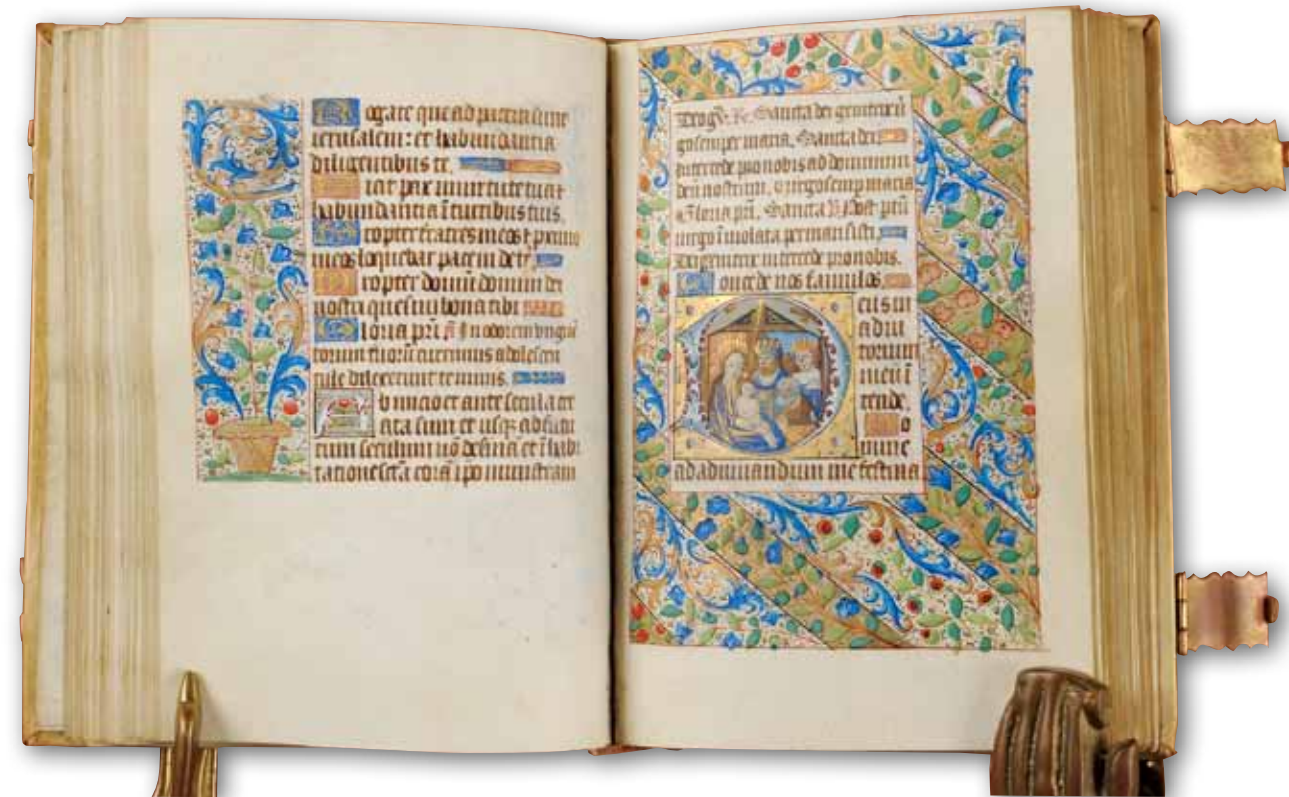 Rogate que ad pacem sunt
ierusalem: et habundantia
diligentibus te.
Fiat pax in uirtute tua et
habundantia ī turribus tuis.
Propter fratres meos ⁊ proximos
meos loquebar pacem de te.
Propter domū domini dei
nostri quesiui bona tibi
Gloria pri. añ In odorem ungen
torum tuorū currimus adolescen
tule dilexerunt te nimis.
Ab inicio et ante secula cre
ata sum et usqꝫ ad futu
rum seculum nō desinā et ī habi
tatione scā corā ipo ministraui
Deo grās. R. Sancta dei genitrix ū
go semper maria. Sancta dei
intercede pro nobis ad dominum
deū nostrum. uirgo semp maria
Gloria pri. Sancta V Post ptū
uirgo īuiolata permansisti.
Dei genitrix intercede pro nobis.
Concede nos famulos
Deus in
adiu
torium
meū ī
tende.
Do
mine
ad adiuuandum me festina